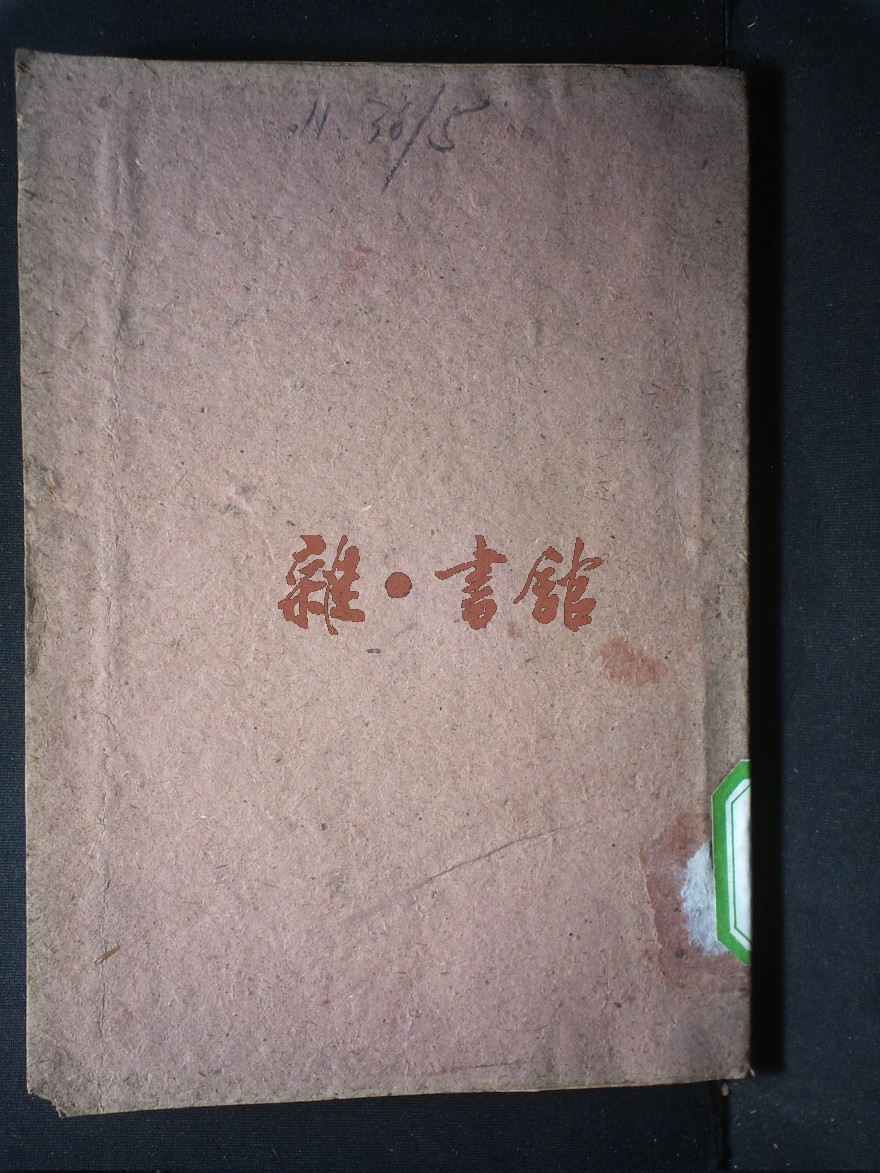 11. 30/5
雜·書館